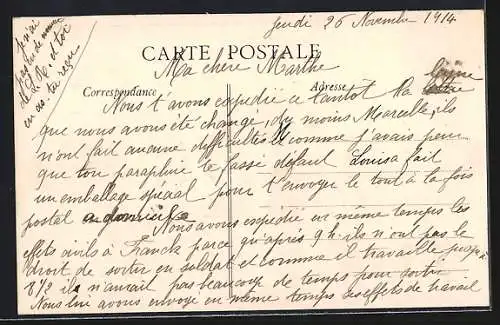 Jeudi 26 Novembre 1914
CARTE POSTALE
Ma chère Marthe
Correspondance
Adresse
Nous t'avons expédié ce tantôt la
que nous avons été changé, du moins Marcelle, ils
n'ont fait aucune difficultés et comme j'avais peur
que ton paraphine te fasse défaut Louisa fait
un emballage spécial pour t'envoyer le tout à la fois
postal
Nous avons expédié en même temps les
effets civils à Franck parce qu'après 9 h. ils n'ont pas le
droit de sortir en soldat et comme il travaille jusqu'à
8 h ½ ils n'aurait pas beaucoup de temps pour sortir
Nous lui avons envoyé en même temps ses effets de travail
J'ai
pas de nouvelle
et toi
en as tu reçu